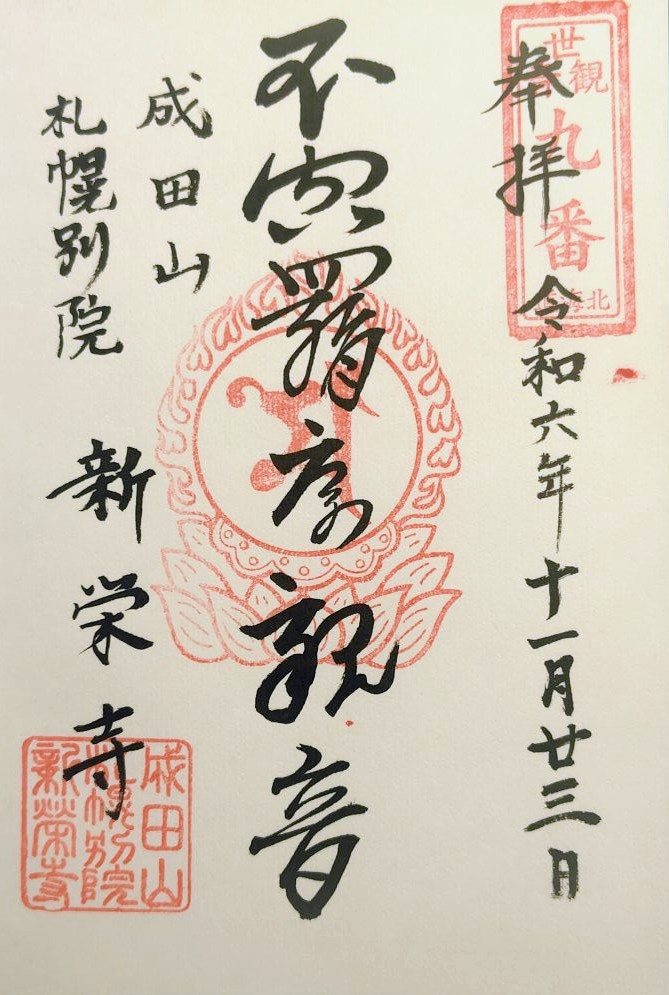 奉拝
令和六年十一月廿三日
観世
九番
北海
不空羂索観音
成田山
札幌別院
新栄寺
成田山
札幌別院
新榮寺